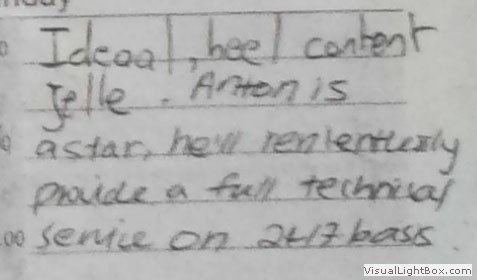 nday
Ideaal, heel content
Jelle. Anton is
a star, he'll renlentlessly
provide a full technical
.00 service on 24/7 basis.
VisualLightBox.com